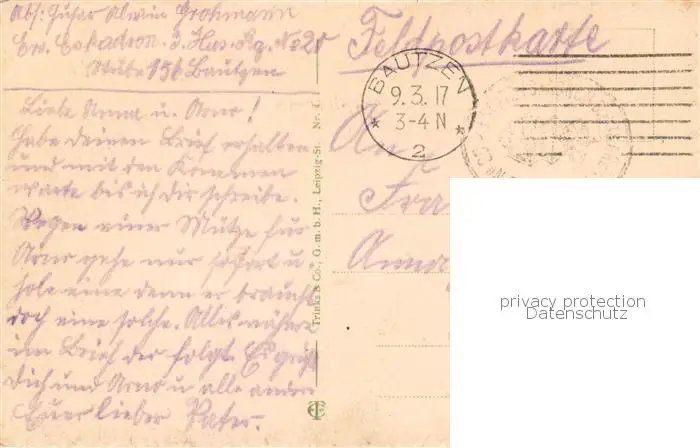 Abs: Husar Alwin Grohmann
Ers. Eskadron 3. Hus. Rg. No 20
Stube 151 Bautzen
Liebe Anna u. Arno!
Habe deinen Brief erhalten
und mit den Kommen
warte bis ich dir schreibe.
Wegen einer Mütze für
Arno gehe nur sofort u.
hole eine denn er braucht
doch eine solche. Alles nähere
im Brief der folgt. Es grüßt
Dich und Arno u alle andern
Euer lieber Vater.
Trinks & Co., G. m. b. H., Leipzig-St. Nr.
Feldpostkarte
BAUTZEN
9.3.17
3-4 N
* 2 *
An
Fra
Anna
privacy protection
Datenschutz